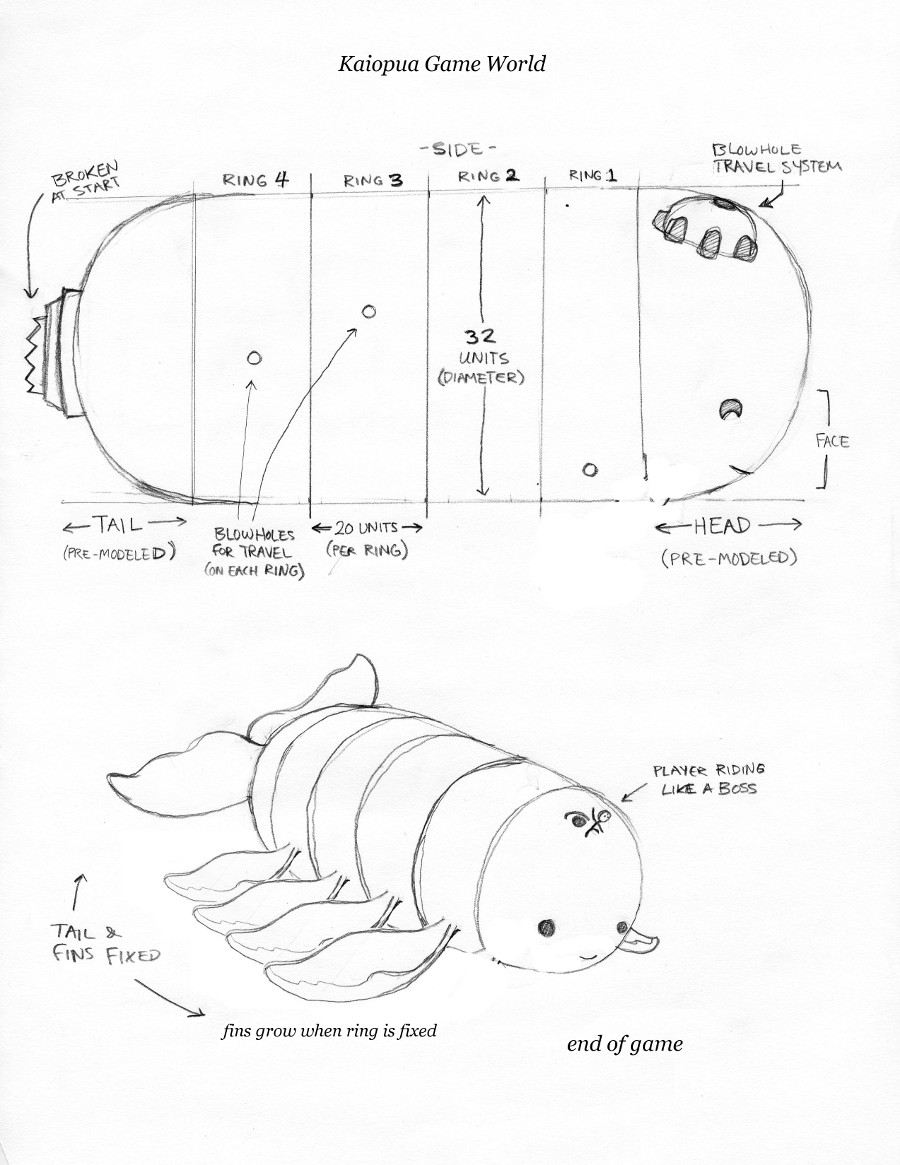 Kaiopua Game World
-SIDE-
BLOWHOLE
TRAVEL SYSTEM
BROKEN
AT START
RING 4
RING 3
RING 2
RING 1
32
UNITS
(DIAMETER)
FACE
TAIL
(PRE-MODELED)
BLOWHOLES
FOR TRAVEL
(ON EACH RING)
20 UNITS
(PER RING)
HEAD
(PRE-MODELED)
PLAYER RIDING
LIKE A BOSS
TAIL &
FINS FIXED
fins grow when ring is fixed
end of game